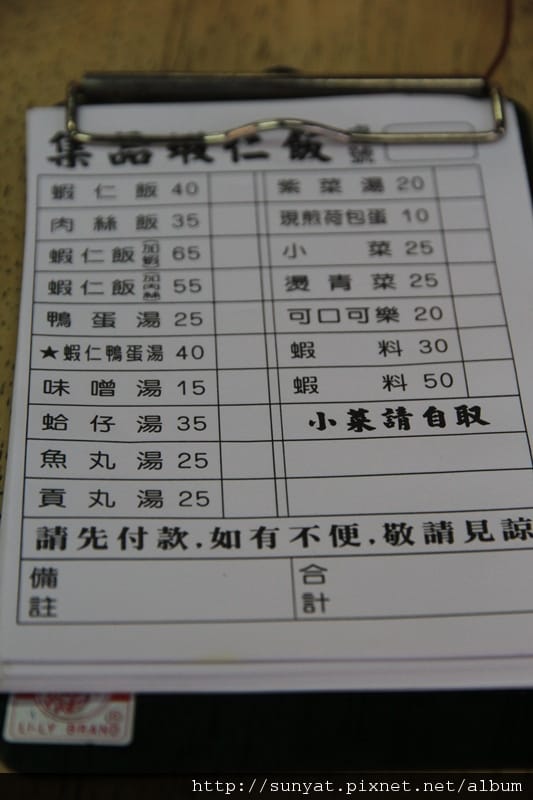 集品蝦仁飯 桌號
蝦仁飯 40
肉絲飯 35
蝦仁飯加蝦 65
蝦仁飯加肉絲 55
鴨蛋湯 25
★蝦仁鴨蛋湯 40
味噌湯 15
蛤仔湯 35
魚丸湯 25
貢丸湯 25
紫菜湯 20
現煎荷包蛋 10
小菜 25
燙青菜 25
可口可樂 20
蝦料 30
蝦料 50
小菜請自取
請先付款.如有不便.敬請見諒
備註
合計
LI-LY BRAND ®
http://sunyat.pixnet.net/album